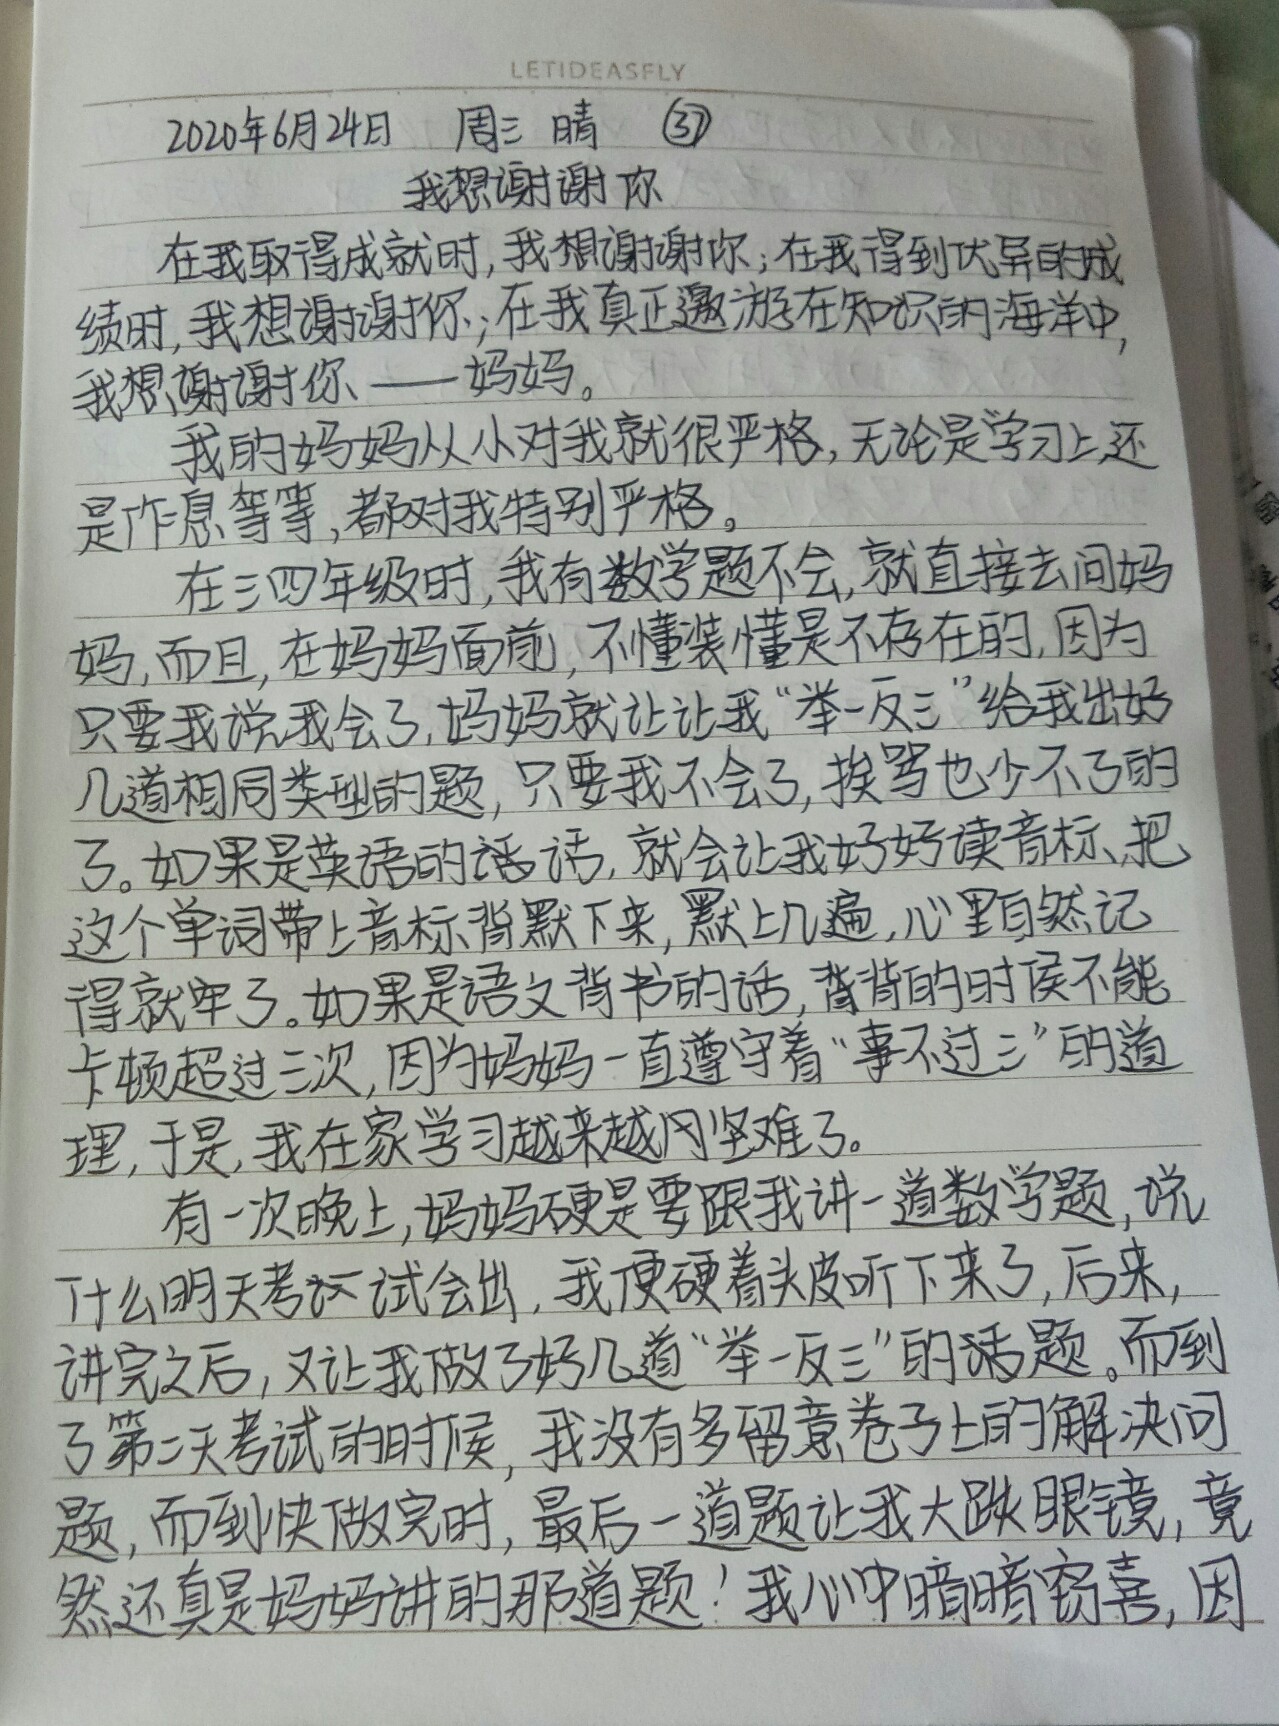 LETIDEASFLY
2020年6月24日 周三 晴 ㊲
我想谢谢你
在我取得成就时,我想谢谢你;在我得到优异的成
绩时,我想谢谢你;在我真正遨游在知识的海洋中,
我想谢谢你——妈妈。
我的妈妈从小对我就很严格,无论是学习上还
是作息等等,都对我特别严格。
在三四年级时,我有数学题不会,就直接去问妈
妈,而且,在妈妈面前,不懂装懂是不存在的,因为
只要我说我会了,妈妈就让让我“举一反三”给我出好
几道相同类型的题,只要我不会了,挨骂也少不了的
了。如果是英语的话话,就会让我好好读音标、把
这个单词带上音标背默下来,默上几遍,心里自然记
得就牢了。如果是语文背书的话,背背的时候不能
卡顿超过三次,因为妈妈一直遵守着“事不过三”的道
理,于是,我在家学习越来越坚难了。
有一次晚上,妈妈硬是要跟我讲一道数学题,说
什么明天考试会出,我便硬着头皮听下来了,后来,
讲完之后,又让我做了好几道“举一反三”的话题。而到
了第二天考试的时候,我没有多留意卷子上的解决问
题,而到快做完时,最后一道题让我大跌眼镜,竟
然还真是妈妈讲的那道题!我心中暗暗窃喜,因